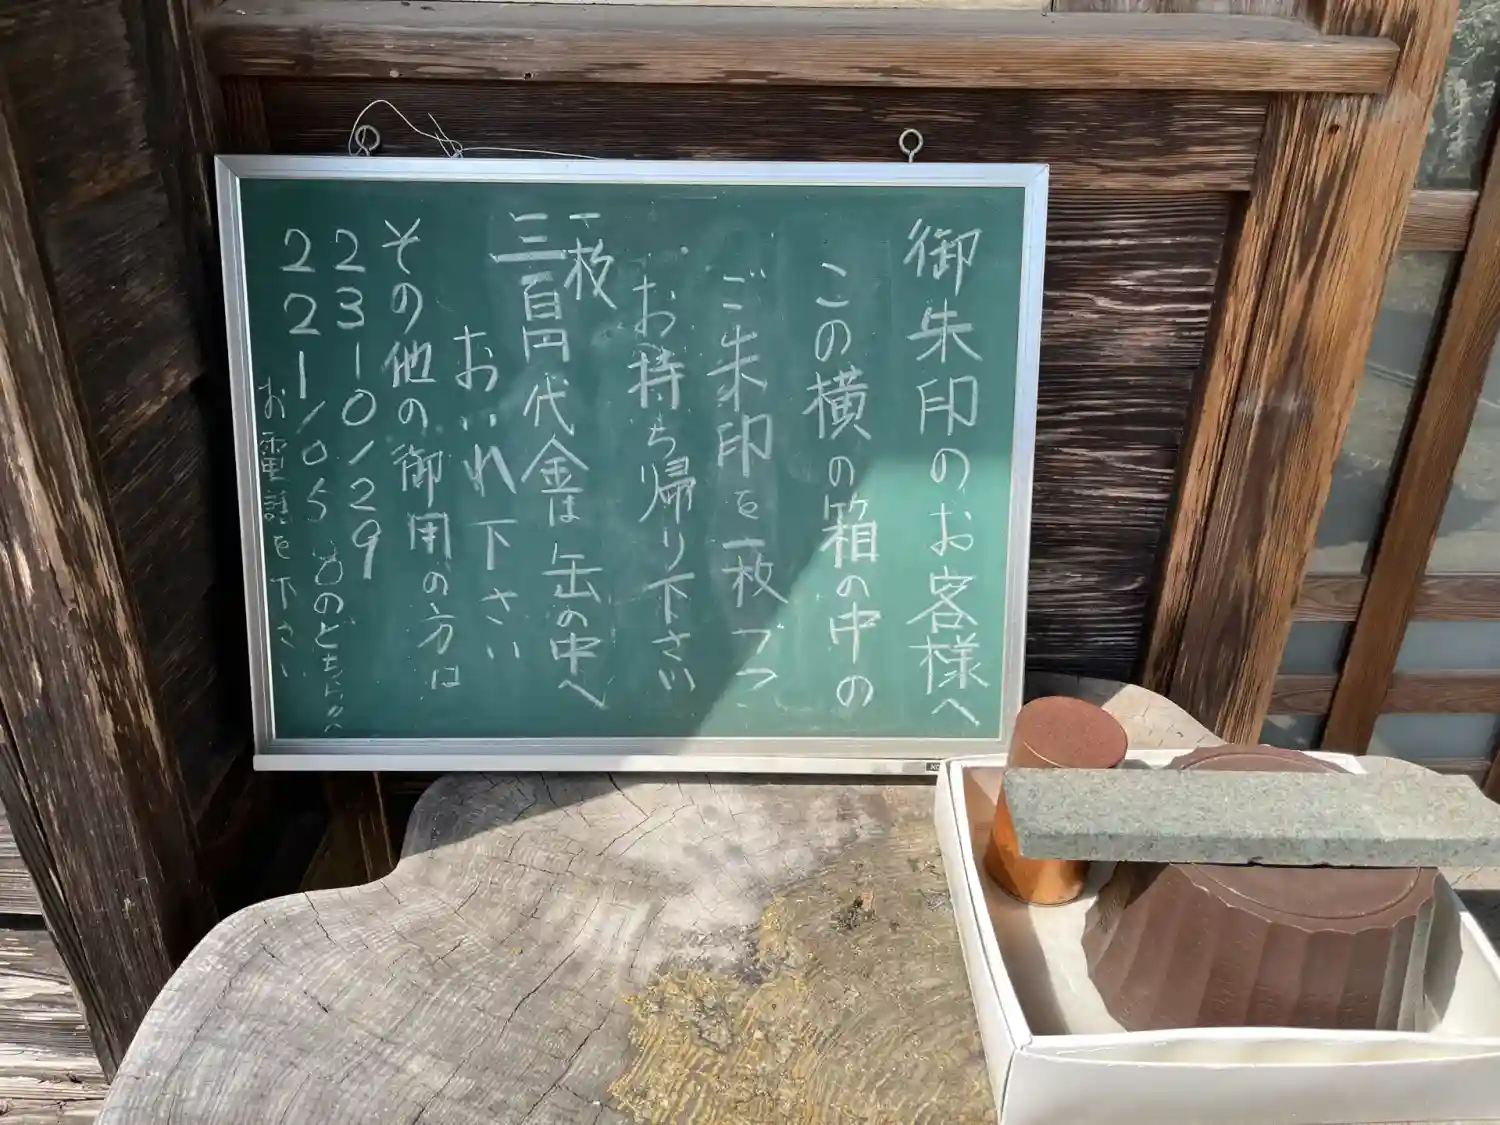 御朱印のお客様へ
この横の箱の中の
ご朱印を一枚づつ
お持ち帰り下さい
一枚
三百円代金は缶の中へ
おいれ下さい
その他の御用の方は
2310129
221105 8のどちらか
お電話を下さい